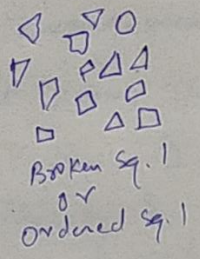 Broken Sq. 1
or
ordered Sq. 1